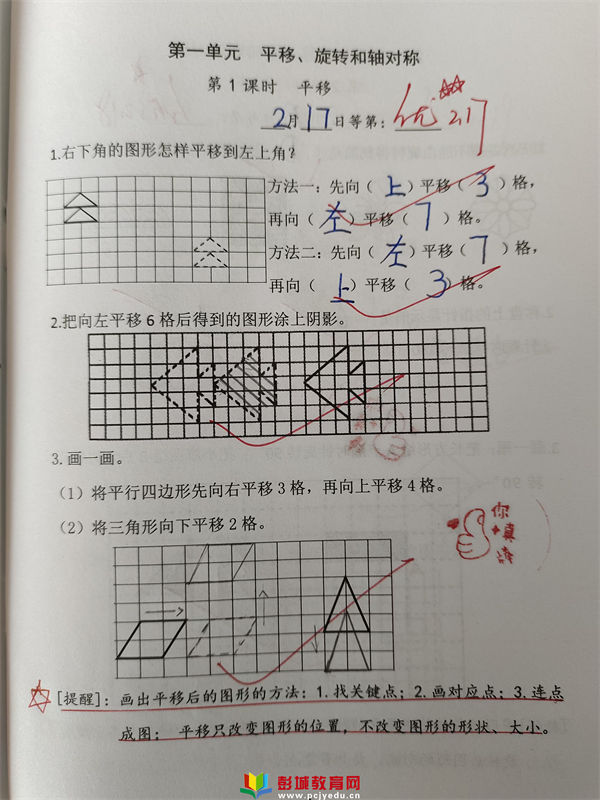 第一单元 平移、旋转和轴对称
第1课时 平移
2月17日等第：优 2.17
1.右下角的图形怎样平移到左上角？
方法一：先向（上）平移（3）格，
再向（左）平移（7）格。
方法二：先向（左）平移（7）格，
再向（上）平移（3）格。
2.把向左平移6格后得到的图形涂上阴影。
3.画一画。
（1）将平行四边形先向右平移3格，再向上平移4格。
（2）将三角形向下平移2格。
你真
[提醒]：画出平移后的图形的方法：1.找关键点；2.画对应点；3.连点
成图； 平移只改变图形的位置，不改变图形的形状、大小。
彭城教育网
www.pcjyedu.cn